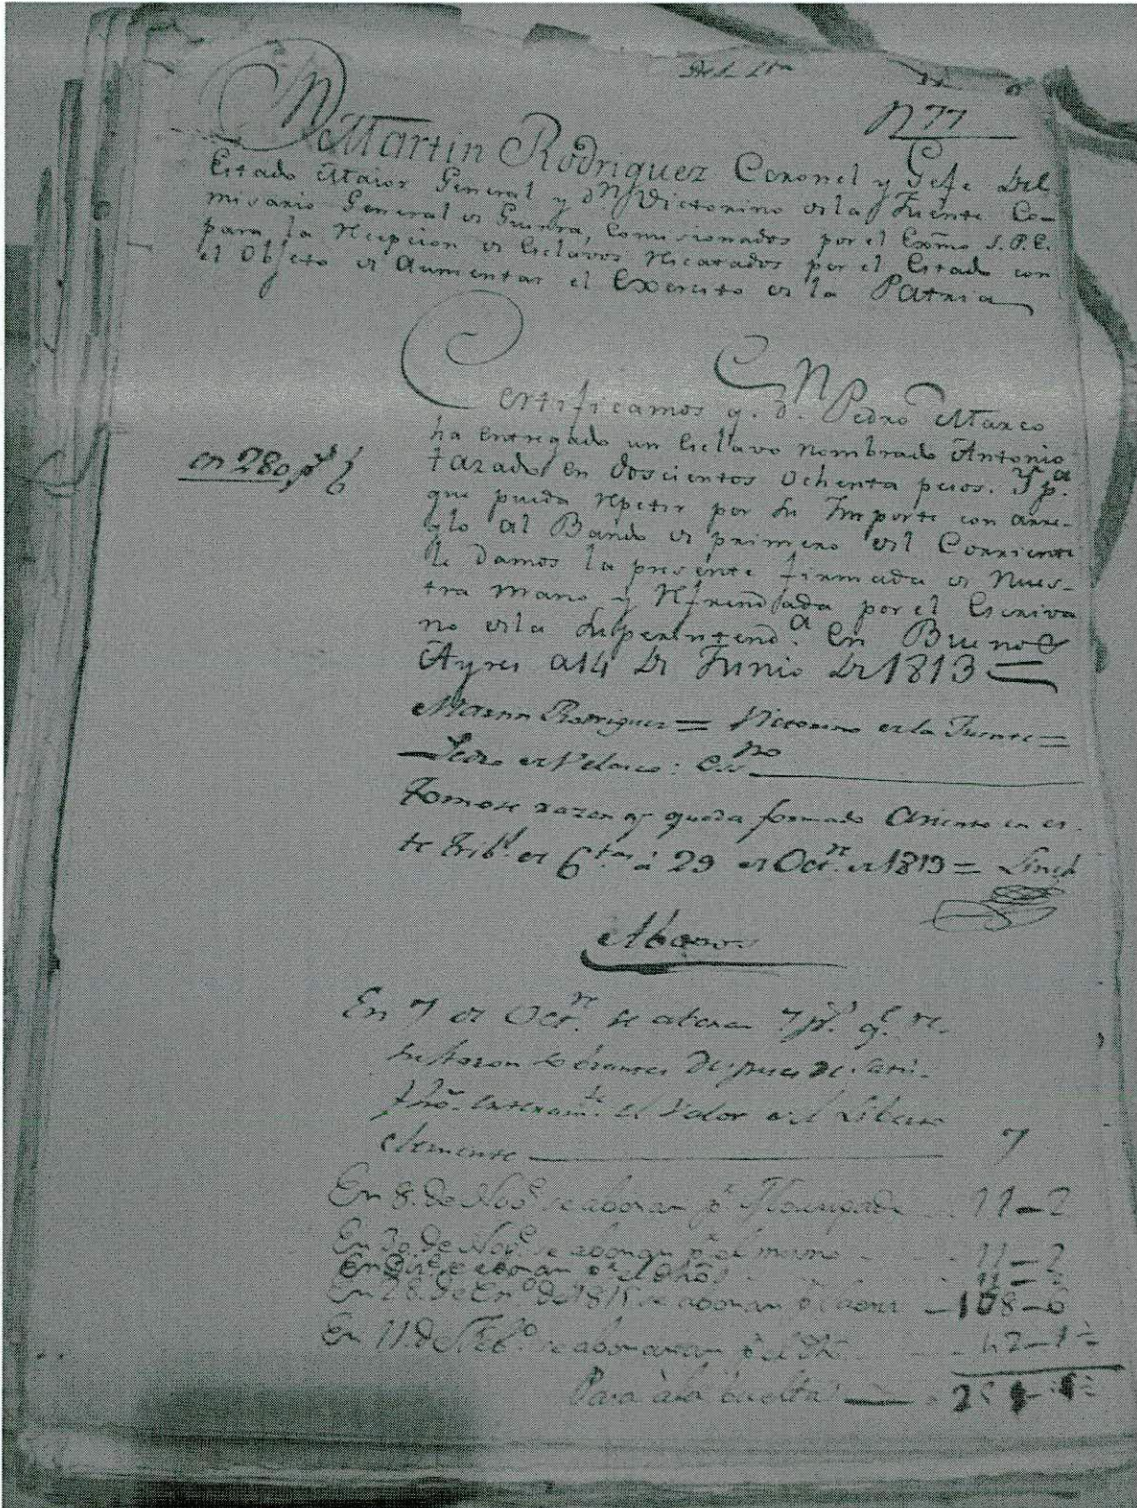 N 77
Dn Martin Rodriguez Coronel y Gefe Del
Estado Maior General y dn Victorino de la Fuente Co-
misario General de Guerra, Comisionados por el Exmo S. P. E.
para la Recepcion de Esclavos Rescatados por el Estado con
el Objeto de Aumentar el Exercito de la Patria
Certificamos q. Dn Pedro Marco
ha entregado un Esclavo nombrado Antonio
en 280 ps
tazado en doscientos ochenta pesos. Y pa.
que pueda repetir por su Importe con arre-
glo al Bando de primero del Corriente
le Damos la presente firmada de Nues-
tra mano y Refrendada por el Escriva
no de la Superintenda. En Buenos
Ayres a 14 De Junio De 1813 =
Martin Rodriguez = Victorino de la Fuente =
Pedro de Velasco: Essno
Tomose razon y queda formado Asiento en es-
te Tribl. de Ctas à 29 de Octre. de 1813 = Linch
Abonos
En 7 de Octre. se abonan 7 ps. q.e re-
sultaron sobrantes Despues de
enteramte. el Valor del Liberto
Clemente 7
En 8. de Nove. se abonan pr. 11-2
En 30. de Nove. se abonan pr. el mismo 11-2
En se abonan pr. el dho 11-2
En 28. de Eno. de 1815 se abonan pr. 108-6
En 11. de Febo. se abonaron pr. el dho.
Pasa à la buelta